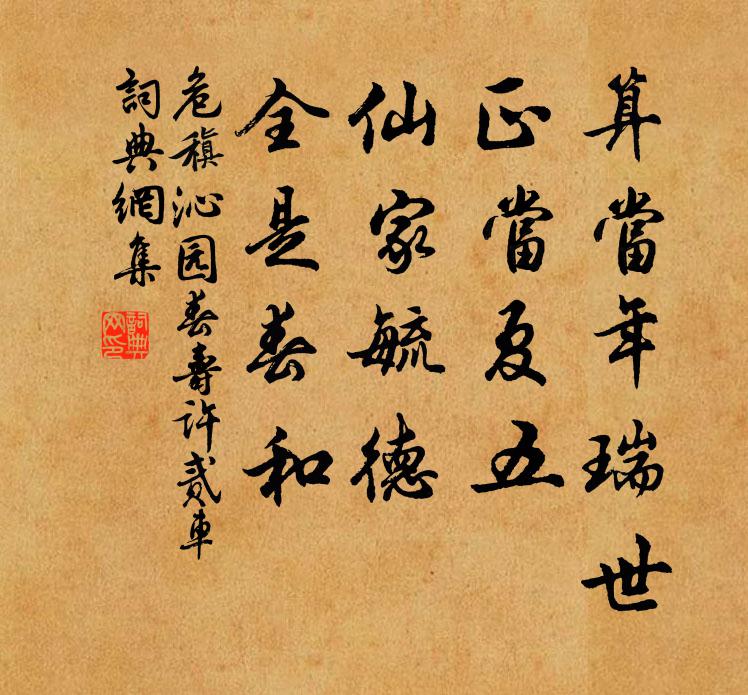 算當年瑞世
正當夏五
仙家毓德
全是春和
危稹沁园春壽许貳車
詞典網集
詞典
网印